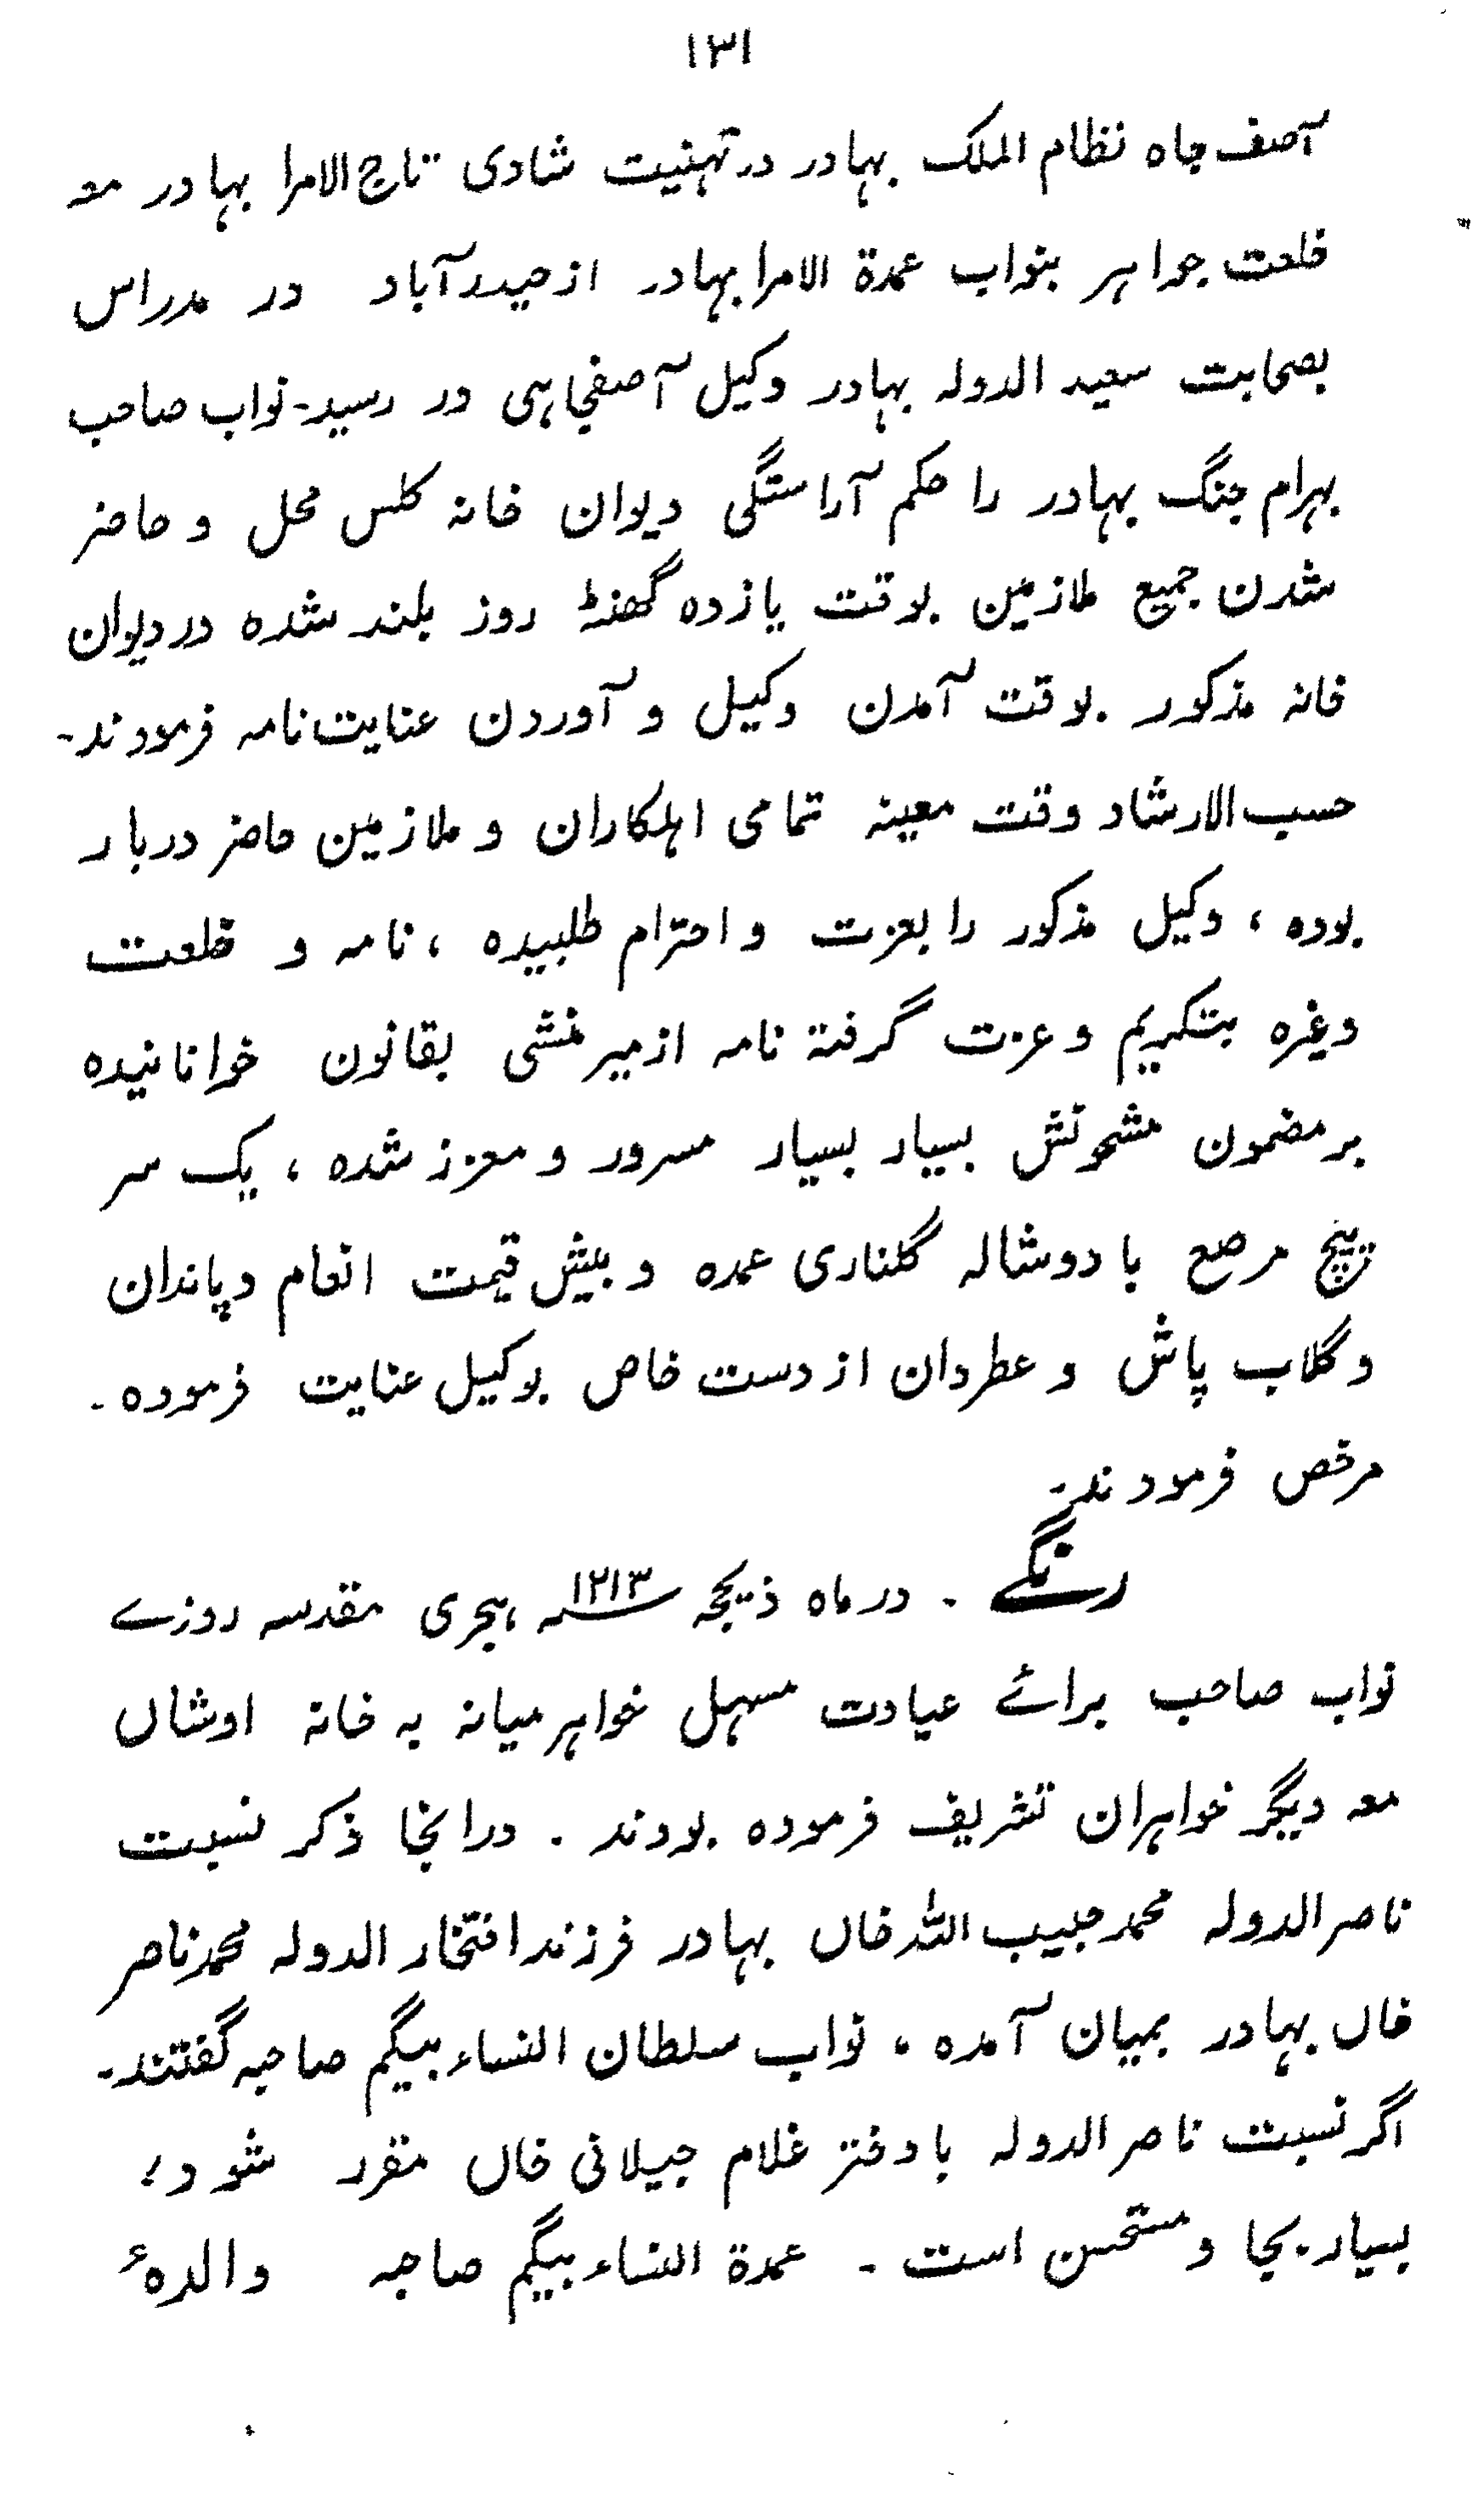 ۱۳۱
آصف جاہ نظام الملک بہادر در تہنیت شادی تاج الامرا بہادر معہ
خلعت جواہر بنواب عمدۃ الامرا بہادر از حیدرآباد در مدراس
بصحابت سعید الدولہ بہادر وکیل آصفجاہی در رسید۔ نواب صاحب
بہرام جنگ بہادر را حکم آراستگی دیوان خانہ کلس محل و حاضر
شدن جمیع ملازمین بوقت یازدہ گھنٹہ روز بلند شدہ در دیوان
خانہ مذکور بوقت آمدن وکیل و آوردن عنایت نامہ فرمودند۔
حسب الارشاد وقت معینہ تمامی اہلکاران و ملازمین حاضر دربار
بودہ ، وکیل مذکور را بعزت و احترام طلبیدہ ، نامہ و خلعت
وغیرہ بتکریم و عزت گرفتہ نامہ از میر منشی بقانون خوانانیدہ
بر مضمون مشحونش بسیار بسیار مسرور و معزز شدہ ، یک سر
پیچ مرصع با دوشالہ گلناری عمدہ و بیش قیمت انعام و پاندان
و گلاب پاش و عطردان از دست خاص بوکیل عنایت فرمودہ ۔
مرخص فرمودند۔
رنگے ۔ در ماہ ذیحجہ ۱۲۱۳؁ ہجری مقدسہ روزے
نواب صاحب برائے عیادت مسہل خواہر میانہ بہ خانہ اوشاں
معہ دیگر خواہران تشریف فرمودہ بودند ۔ درانجا ذکر نسبت
ناصر الدولہ محمد حبیب اللہ خاں بہادر فرزند افتخار الدولہ محمد ناصر
خاں بہادر بمیان آمدہ ، نواب سلطان النساء بیگم صاحبہ گفتند۔
اگر نسبت ناصر الدولہ با دختر غلام جیلانی خاں مقرر شود ،
بسیار بجا و مستحسن است ۔ عمدۃ النساء بیگم صاحبہ والدہٴ